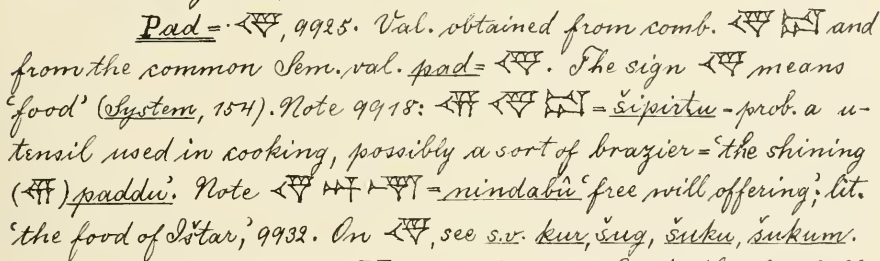 Pad = 𒉻, 9925. Val. obtained from comb. 𒉻 and
from the common Sem. val. pad = 𒉻. The sign 𒉻 means
'food' (System, 154). Note 9918: 𒉻 = šipirtu - prob. a u-
tensil used in cooking, possibly a sort of brazier = 'the shining
paddu'. Note 𒉻 𒀭 𒈹 = nindabû 'free will offering'; lit.
'the food of Ištar,' 9932. On 𒉻, see s.v. kur, šug, šuku, šukum.